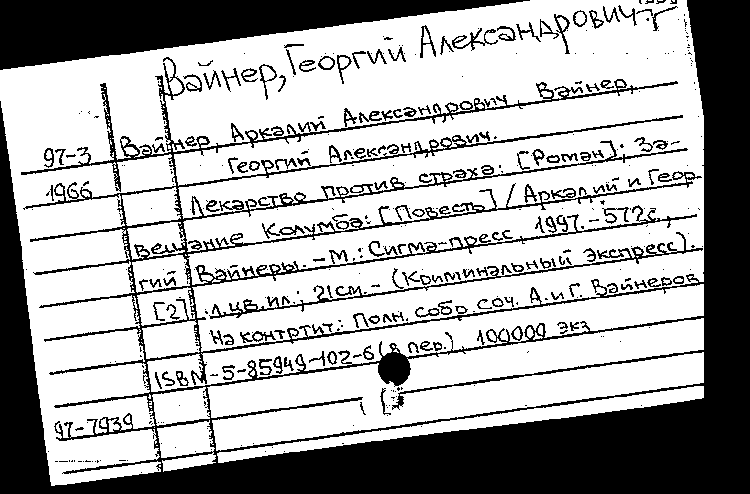 Вайнер, Георгий Александрович
97-3 Вайнер, Аркадий Александрович, Вайнер,
1966 Георгий Александрович.
Лекарство против страха: [Роман]; За-
вещание Колумба: [Повесть] / Аркадий и Геор-
гий Вайнеры. - М.: Сигма-пресс, 1997. - 572с.,
[2] л.цв.ил.; 21см. - (Криминальный экспресс).
На контртит.: Полн. собр. соч. А. и Г. Вайнеров
ISBN-5-85949-102-6 (в пер.), 100000 экз
97-7939